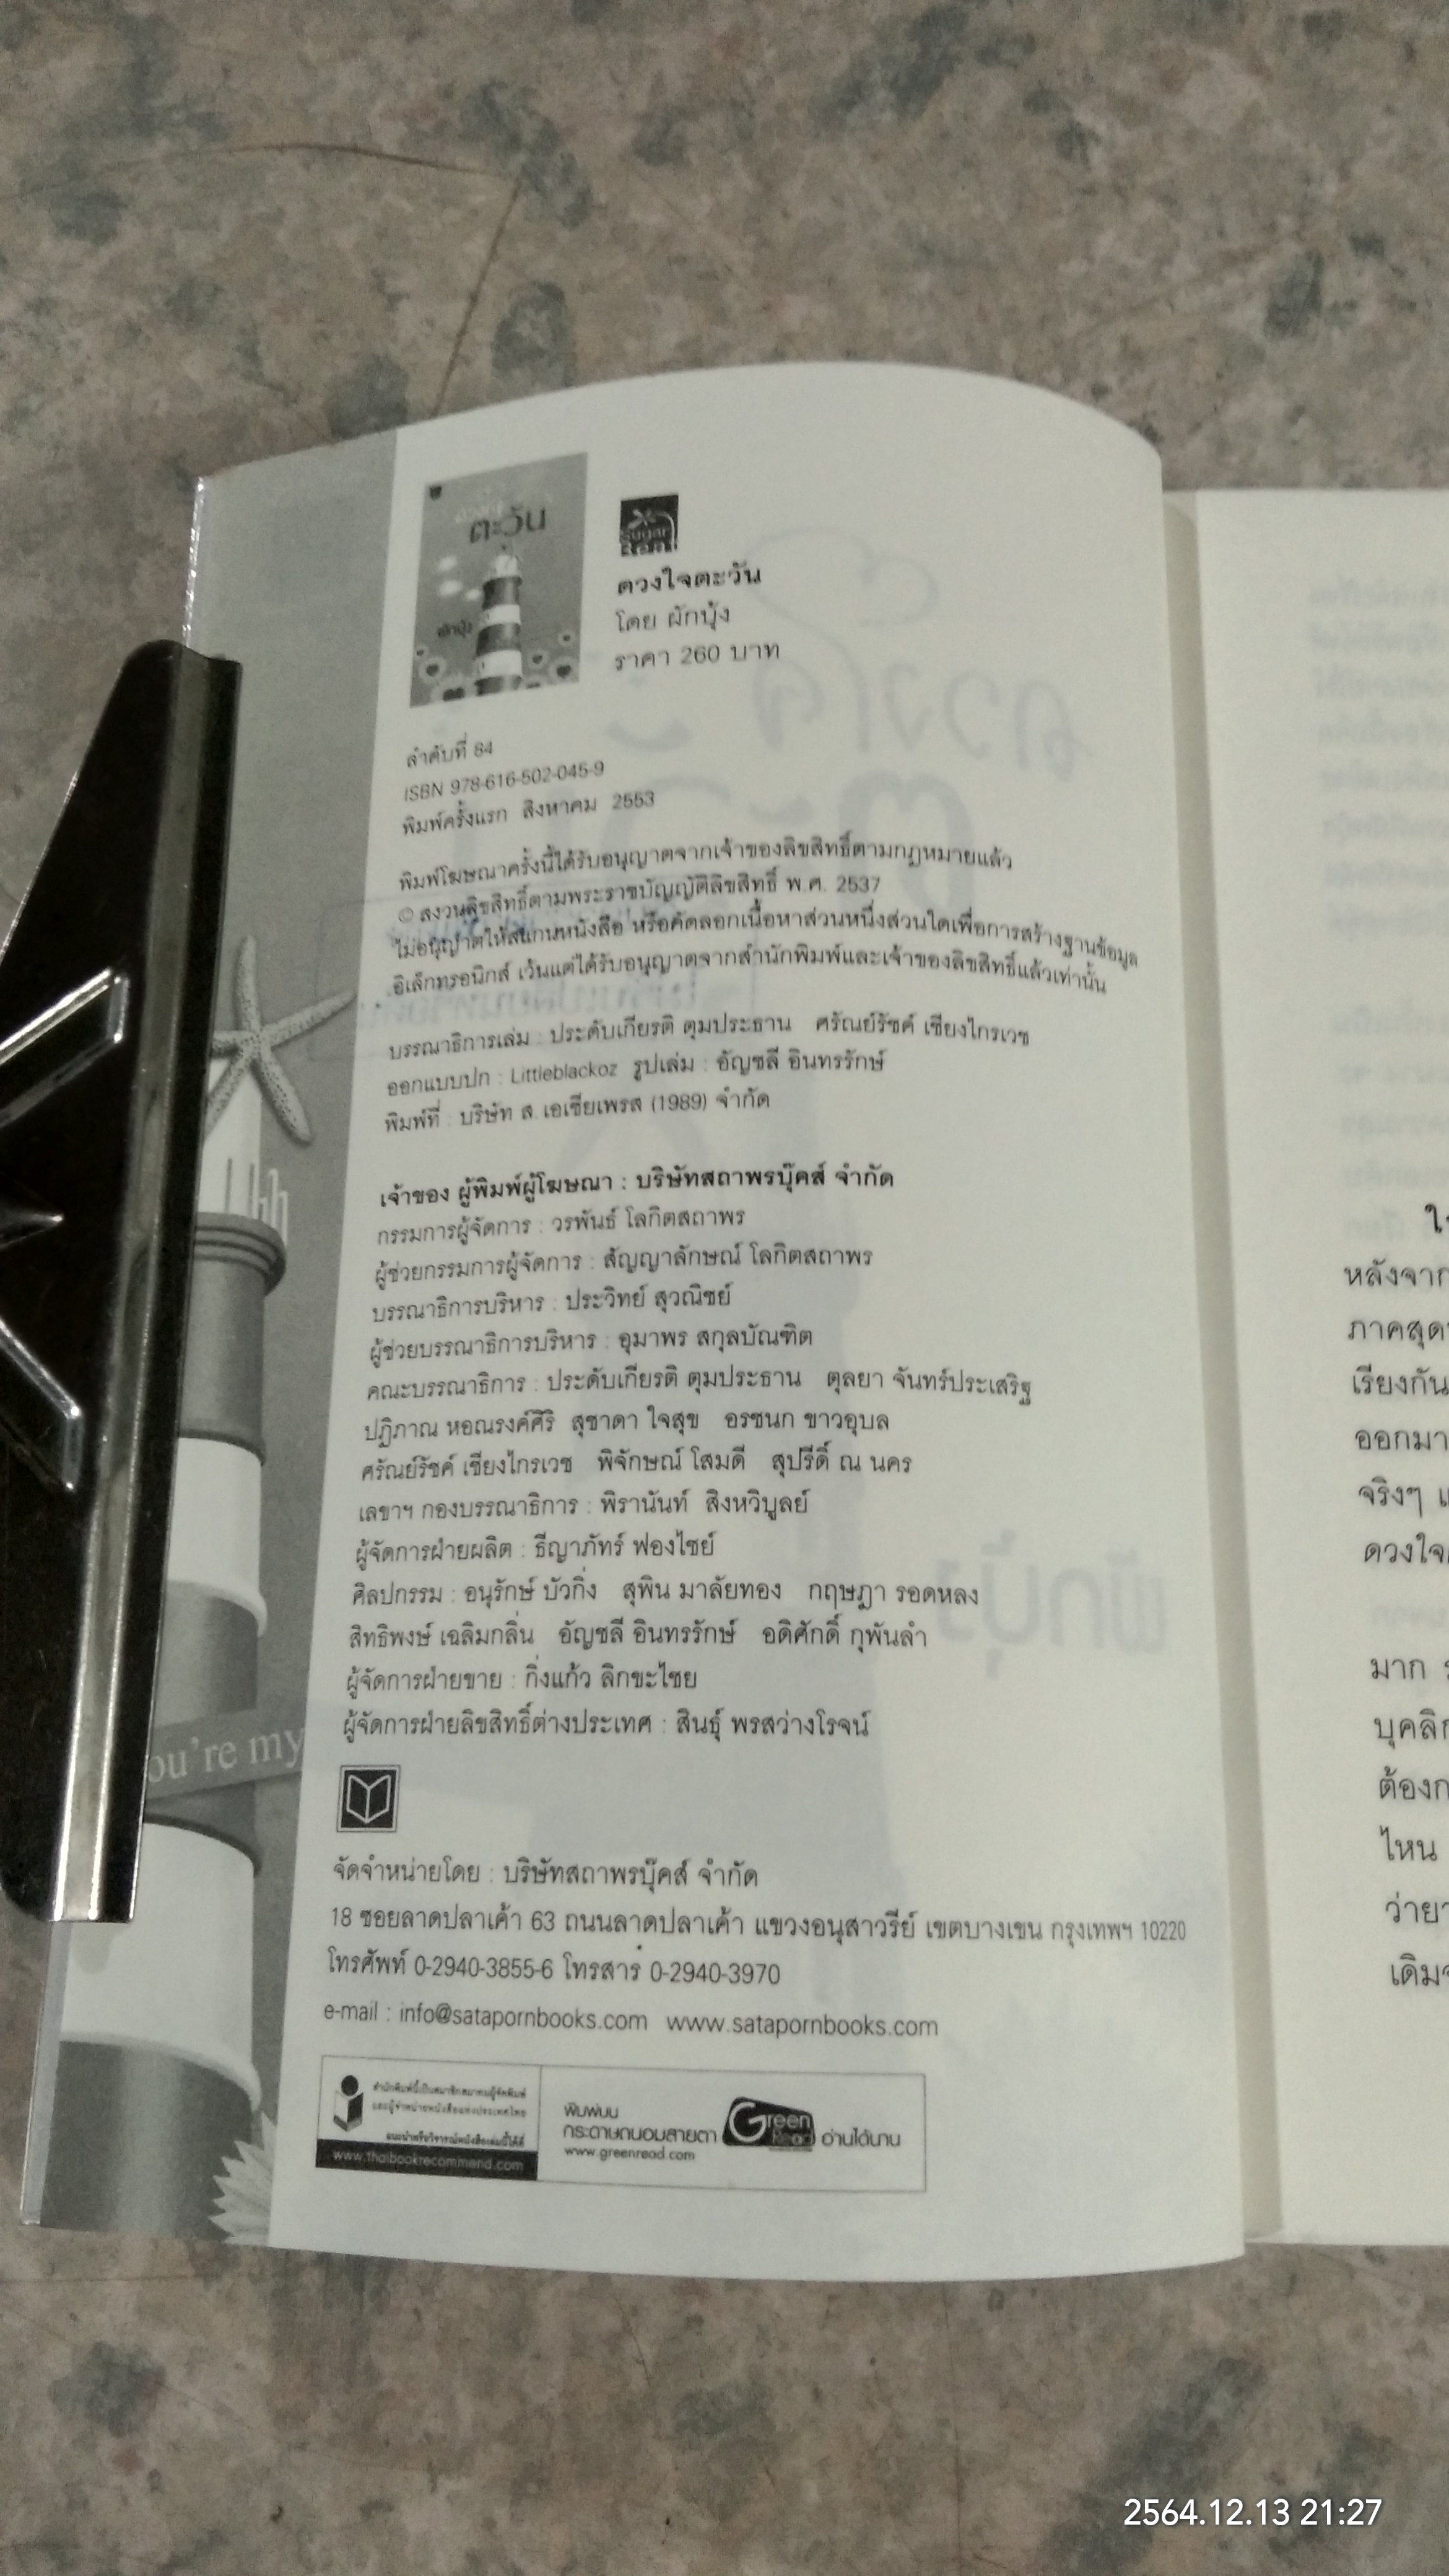 ตะวัน
ผักบุ้ง
Sugar
ดวงใจตะวัน
โดย ผักบุ้ง
ราคา 260 บาท
ลำดับที่ 84
ISBN 978-616-502-045-9
พิมพ์ครั้งแรก สิงหาคม 2553
พิมพ์โฆษณาครั้งนี้ได้รับอนุญาตจากเจ้าของลิขสิทธิ์ตามกฎหมายแล้ว
© สงวนลิขสิทธิ์ตามพระราชบัญญัติลิขสิทธิ์ พ.ศ. 2537
ไม่อนุญาตให้สแกนหนังสือ หรือคัดลอกเนื้อหาส่วนหนึ่งส่วนใดเพื่อการสร้างฐานข้อมูล
อิเล็กทรอนิกส์ เว้นแต่ได้รับอนุญาตจากสำนักพิมพ์และเจ้าของลิขสิทธิ์แล้วเท่านั้น
บรรณาธิการเล่ม : ประดับเกียรติ ตุมประธาน ศรัณย์รัชค์ เชียงไกรเวช
ออกแบบปก : Littleblackoz รูปเล่ม : อัญชลี อินทรรักษ์
พิมพ์ที่ : บริษัท ส.เอเซียเพรส (1989) จำกัด
เจ้าของ ผู้พิมพ์ผู้โฆษณา : บริษัทสถาพรบุ๊คส์ จำกัด
กรรมการผู้จัดการ : วรพันธ์ โลกิตสถาพร
ผู้ช่วยกรรมการผู้จัดการ : สัญญาลักษณ์ โลกิตสถาพร
บรรณาธิการบริหาร : ประวิทย์ สุวณิชย์
ผู้ช่วยบรรณาธิการบริหาร : อุมาพร สกุลบัณฑิต
คณะบรรณาธิการ : ประดับเกียรติ ตุมประธาน ตุลยา จันทร์ประเสริฐ
ปฏิภาณ หอณรงค์ศิริ สุชาดา ใจสุข อรชนก ขาวอุบล
ศรัณย์รัชค์ เชียงไกรเวช พิจักษณ์ โสมดี สุปรีดิ์ ณ นคร
เลขาฯ กองบรรณาธิการ : พิรานันท์ สิงหวิบูลย์
ผู้จัดการฝ่ายผลิต : ธีญาภัทร์ ฟองไชย์
ศิลปกรรม : อนุรักษ์ บัวกิ่ง สุพิน มาลัยทอง กฤษฎา รอดหลง
สิทธิพงษ์ เฉลิมกลิ่น อัญชลี อินทรรักษ์ อดิศักดิ์ กุพันลำ
ผู้จัดการฝ่ายขาย : กิ่งแก้ว ลิกขะไชย
ผู้จัดการฝ่ายลิขสิทธิ์ต่างประเทศ : สินธุ์ พรสว่างโรจน์
ou're my
จัดจำหน่ายโดย : บริษัทสถาพรบุ๊คส์ จำกัด
18 ซอยลาดปลาเค้า 63 ถนนลาดปลาเค้า แขวงอนุสาวรีย์ เขตบางเขน กรุงเทพฯ 10220
โทรศัพท์ 0-2940-3855-6 โทรสาร 0-2940-3970
e-mail : info@satapornbooks.com www.satapornbooks.com
สำนักพิมพ์นี้เป็นสมาชิกสมาคมผู้จัดพิมพ์
และผู้จำหน่ายหนังสือแห่งประเทศไทย
แนะนำหรือวิจารณ์หนังสือเล่มนี้ได้ที่
www.thaibookrecommend.com
พิมพ์บน
กระดาษถนอมสายตา Green Read อ่านได้นาน
www.greenread.com
หลังจาก
ภาคสุด
เรียงกัน
ออกมา
จริงๆ
ดวงใจ
มาก
บุคลิก
ต้องก
ไหน
ว่ายา
เดิมจ
2564.12.13 21:27